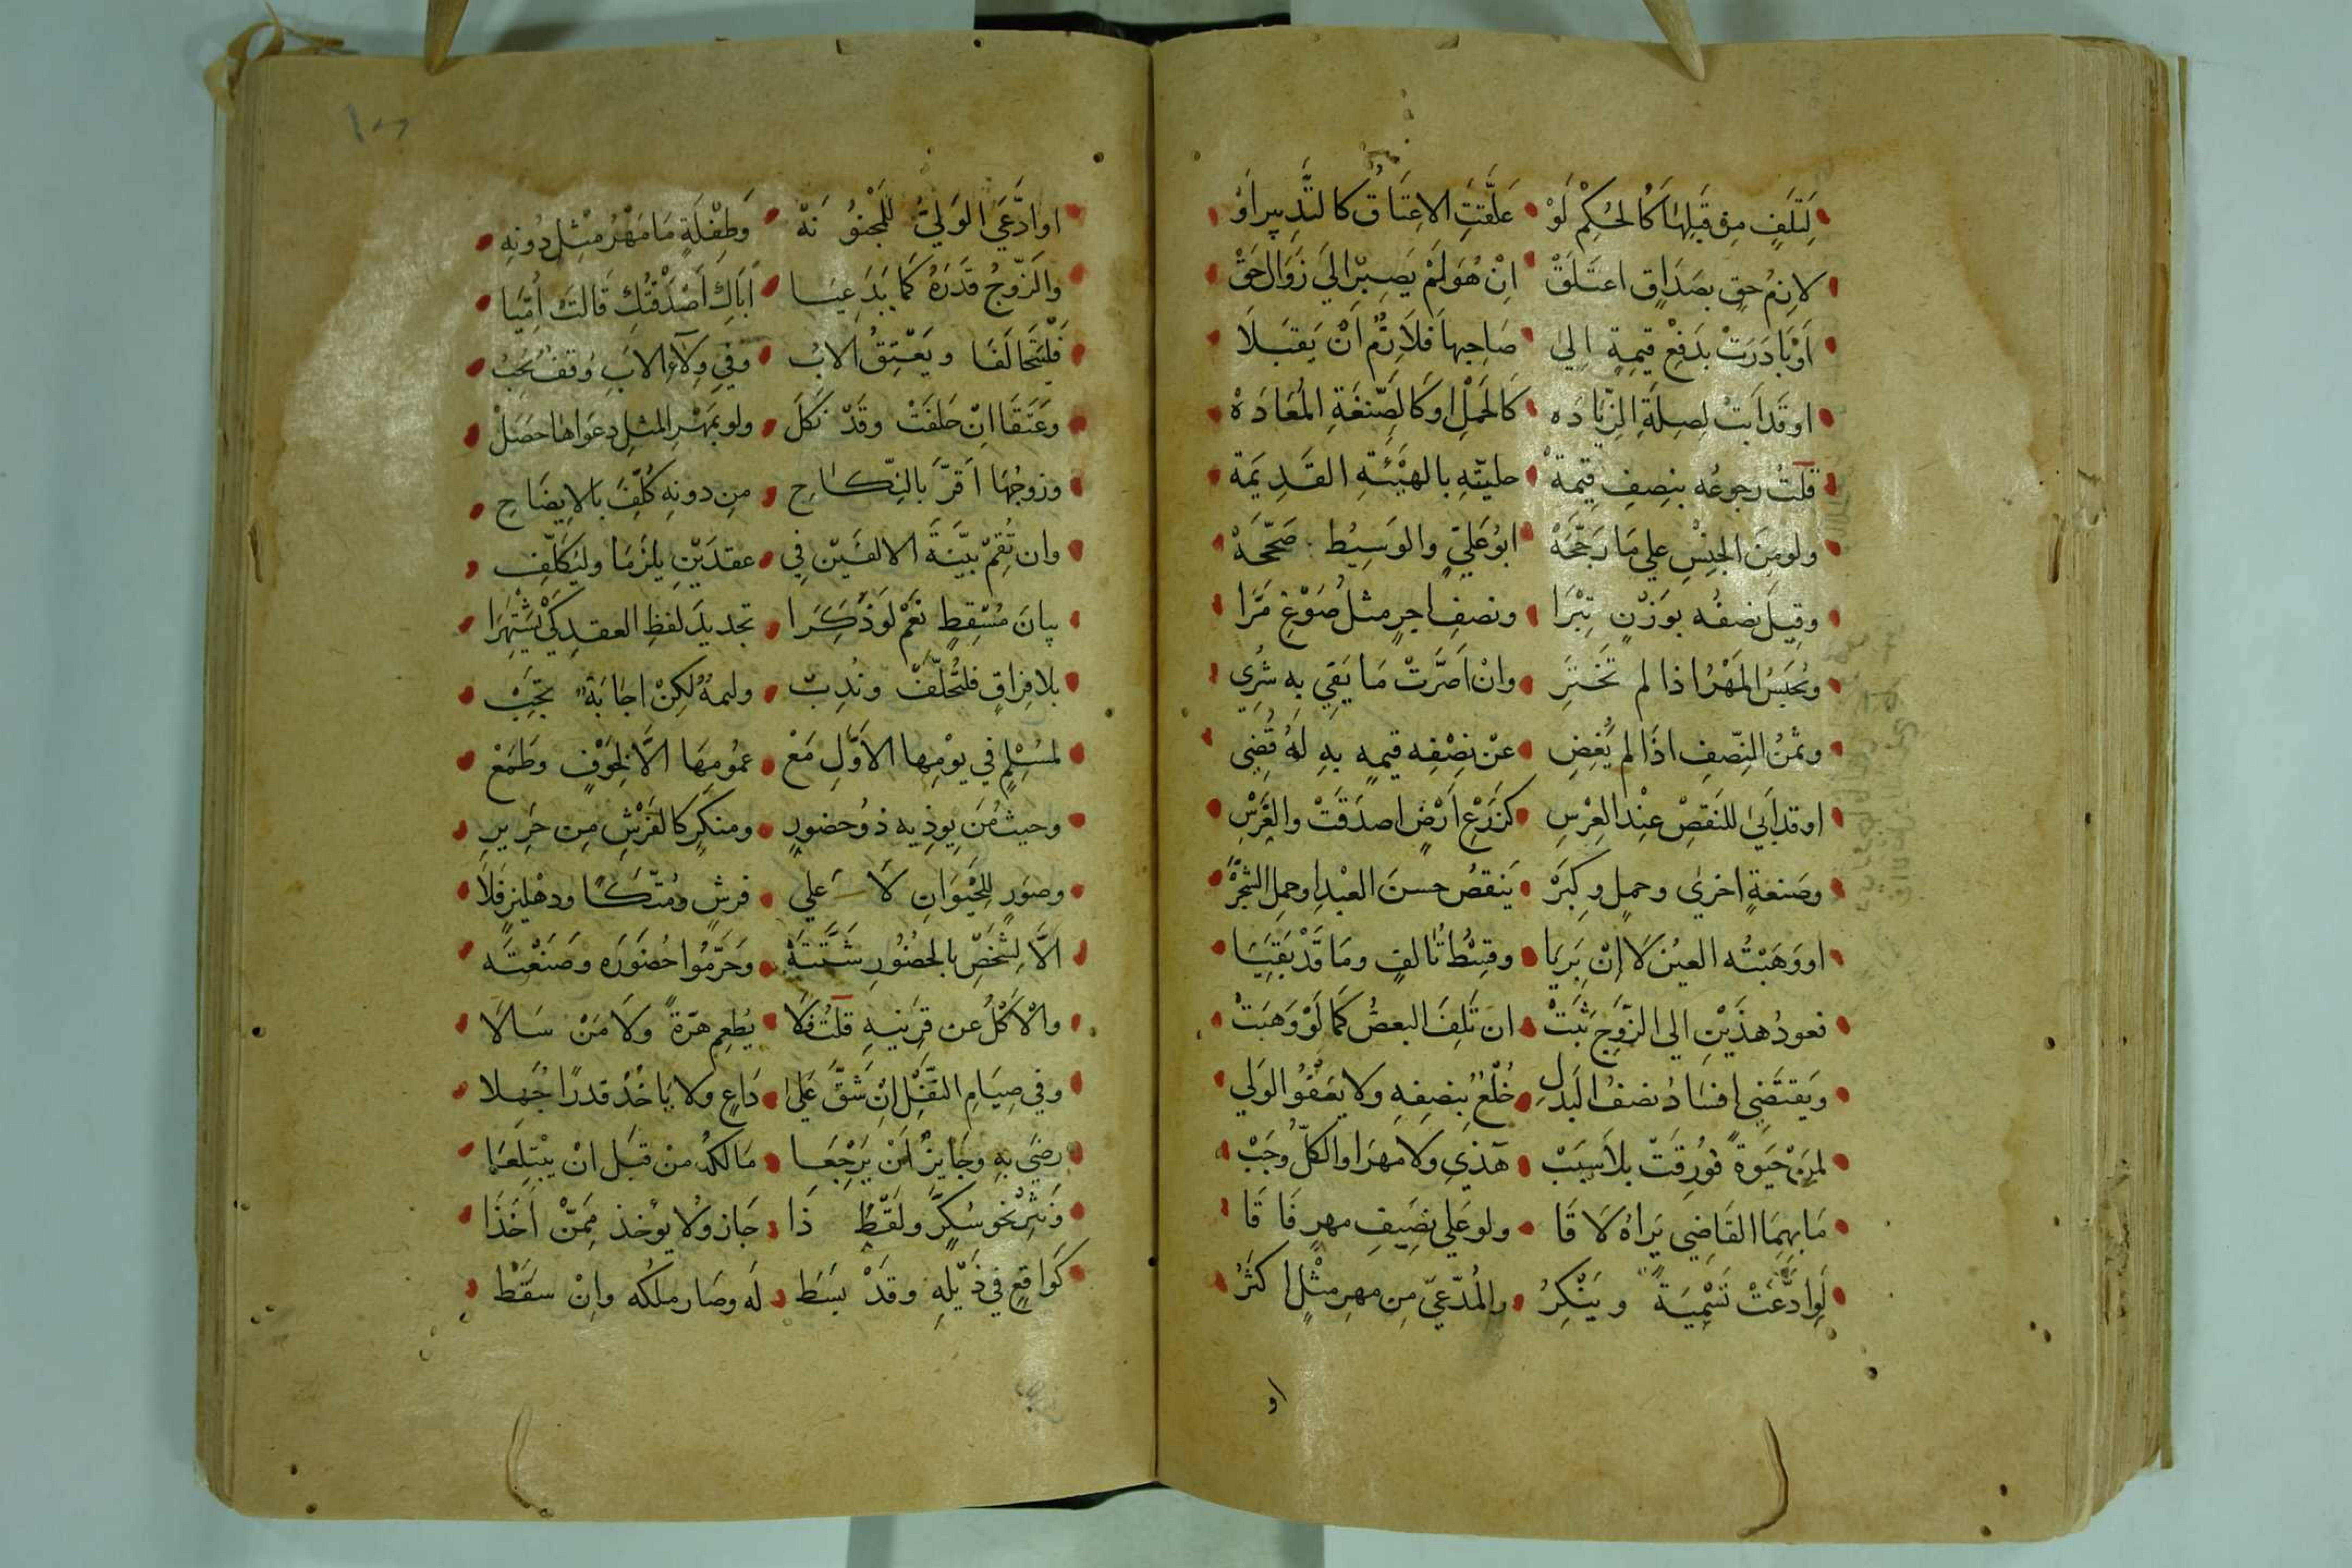 لِتَلَفٍ مِن قَبْلِهَا كَالحُكْمِ لَوْ عَلَّقَتِ الاعْتَاقَ كَالتَّدبِيرِ أَوْ
لازِمُ حقٍ بصَدَاقٍ اعتَلَقْ اِنْ هُوَ لَمْ يَصِرْ الي زَوَالِ حَقْ
أَوْ بَادَرَتْ بدَفْعِ قيمَةٍ اِلي صَاحِبهَا فَلازِمٌ أَنْ يَقبَلَا
او قَد ابَتْ لِصِلَةِ الزّيادَه كَالحَملِ او كَالصّنْعَةِ المُعَادَهْ
قلتُ رجوعُه بنِصفِ قيمة حليّهِ بالهَيْئَةِ القَدِيمَة
ولو مِنَ الجِنْسِ علي مَا رَجّحَهْ ابُو عَليّ والوَسِيْطُ صَحّحَهْ
وقِيلَ نصْفُه بوَزْنٍ تِبْرَا ونصفِ اجرٍ مثلُ صَوْغٍ مَرّا
وَيُحبَسُ المَهْرُ اذا لم تَخْتَرِ وانْ اَصَرَّتْ مَا يَفِي بِهِ شُرِي
وثمنُ النِّصفِ اذَا لم يُغِضِ عنْ نِصْفِه قيمه بِهِ لهُ قُضِي
او قد أَبَى للنَقصِ عِنْد العِرْسِ كزَرْعِ اَرْضٍ اصدَقَتْ والغَرْسِ
وصَنعةٍ اخرى وحملٍ وكِبَرْ يَنقصُ حسنَ العبْدِ او حملِ الشّجَرْ
او وَهَبتُه العيْنَ لا إِنْ بَرِيَا وقِسْطُ تَالفٍ ومَا قَدْ بَقِيَا
فعودُ هذَيْنِ الي الزَّوجِ ثبَتْ ان تَلِفَ البعضُ كمَا لَوْ وَهَبَتْ
وَيقتَضِي افسَادُ نصفُ البَدَلِ خُلعٌ بنصفِهِ ولا يعفُو الوَلي
لمَنْ حَيَوةً فُورِقَتْ بلا سَبَبْ هَذِي ولا مَهرَ او الكلُّ وجَبْ
مَا بهِمَا القَاضِي يَراهُ لاقَا ولو عَلي نصِيفِ مهرٍ فَاقَا
لَو ادَّعَتْ تَسْمِيَةً ويُنْكِرُ والمُدّعيّ مِن مهرِ مثْلٍ اكثَرُ
او
او ادَّعَي الوَليُّ للمجنُونَهْ وَطِفْلَةٍ مَا مَهْرُ مِثْلٍ دُونِهِ
والزّوجُ قَدَرَهُ كَمَا يَدّعِيَا أبَاكِ اَصْدَقْتُكِ قَالتْ اُمِّيَا
فَلْيَتَحَالَفَا ويَعْتِقُ الابُ وفي وِلآءِ الابِ وُقفٌ يُحَبُ
وعَتَقَا اِنْ حَلفَتْ وقَدْ نكَلَ ولو بمَهْرِ المثلِ دعوَاها حصَلْ
وزوجُهَا اَقرَّ بالنِّكاحِ مِن دونِهِ كُلِّفَ بالايضَاحِ
وان تُقِمْ بيّنَةَ الالفَيْن فِي عقدَيْنِ يلزَمَا وليُكَلَّفِ
بيانَ مُسْقِطٍ نَعَمْ لَو ذَكَرَا تجديدَ لفظِ العقدِ كَيْ يَشْتَهِرَا
بلا فِرَاقٍ فلتُحَلَّفْ ونُدِبْ وليمةٌ لكِنْ اجَابَةٌ تجِبْ
لمُسْلِمٍ في يوْمِها الاوّلِ مَعْ عمُومِهَا الاّ لِخَوْفٍ وطَمَعْ
وحيثُ مَن يوذِيه ذُو حضورٍ ومنكرٍ كالفَرْشِ مِن حَرِيرِ
وصوَرٍ للحَيْوَانِ لَا عَلي فرشٍ ومُتّكَا ودهْليزٍ فَلَا
الاَّ لِشَخْصٍ بالحُضُورِ شَتَّتَهْ وَحَرَّمُوا حُضُورَه وصَنْعتَه
والْاَكْلُ عن قَرِينِهِ قلتُ فَلَا يُطعِم هرَةً ولَا مَنْ سَالَا
وفي صِيَامِ النّفلِ اِنْ شَقَّ عَلي دَاعٍ ولا يَاخُذ قدرًا جُهِلا
رضَي بهِ وجَايزٌ اَنْ يَرْجِعَا مَالكهُ من قبَلِ انْ يبْتَلِعَا
وَنَثْرُ نحوِ سُكّرٍ ولَقْطُ ذَا جَاز ولا يوْخذ مِمَّنْ اَخَذَا
كَوَاقعٍ في ذَيْلِهِ وقدْ بسَطَ لَه وصَار ملكَه واِنْ سقَطْ